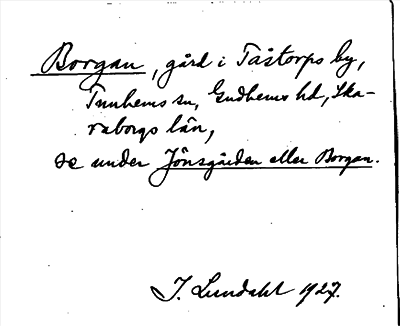 Borgan, gård i Tåstorps by,
Tunhems sn, Gudhems hd, Ska-
raborgs län,
se under Jönsgården eller Borgan.
J. Lundahl 1927.